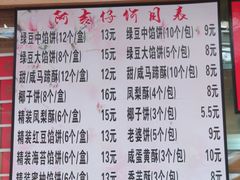 阿嬷仔价目表
绿豆中馅饼(12个/盒) 13元 绿豆中馅饼(10个/包) 9元
绿豆大馅饼(8个/盒) 15元 绿豆大馅饼(5个/包) 8元
甜/咸马蹄酥(12个/盒) 13元 甜/咸马蹄酥(10个/包) 8元
椰子饼(8个/盒) 16元 凤梨酥(4个/包) 8元
凤梨酥(6个/盒) 15元 椰子饼(3个/包) 5.5元
精装红豆馅饼(6个/盒) 16元 老婆饼(5个/包) 9元
精装海苔馅饼(6个/盒) 16元 咸蛋黄酥(3个/包) 9元
(6个/盒) 香芋酥(3个/包)